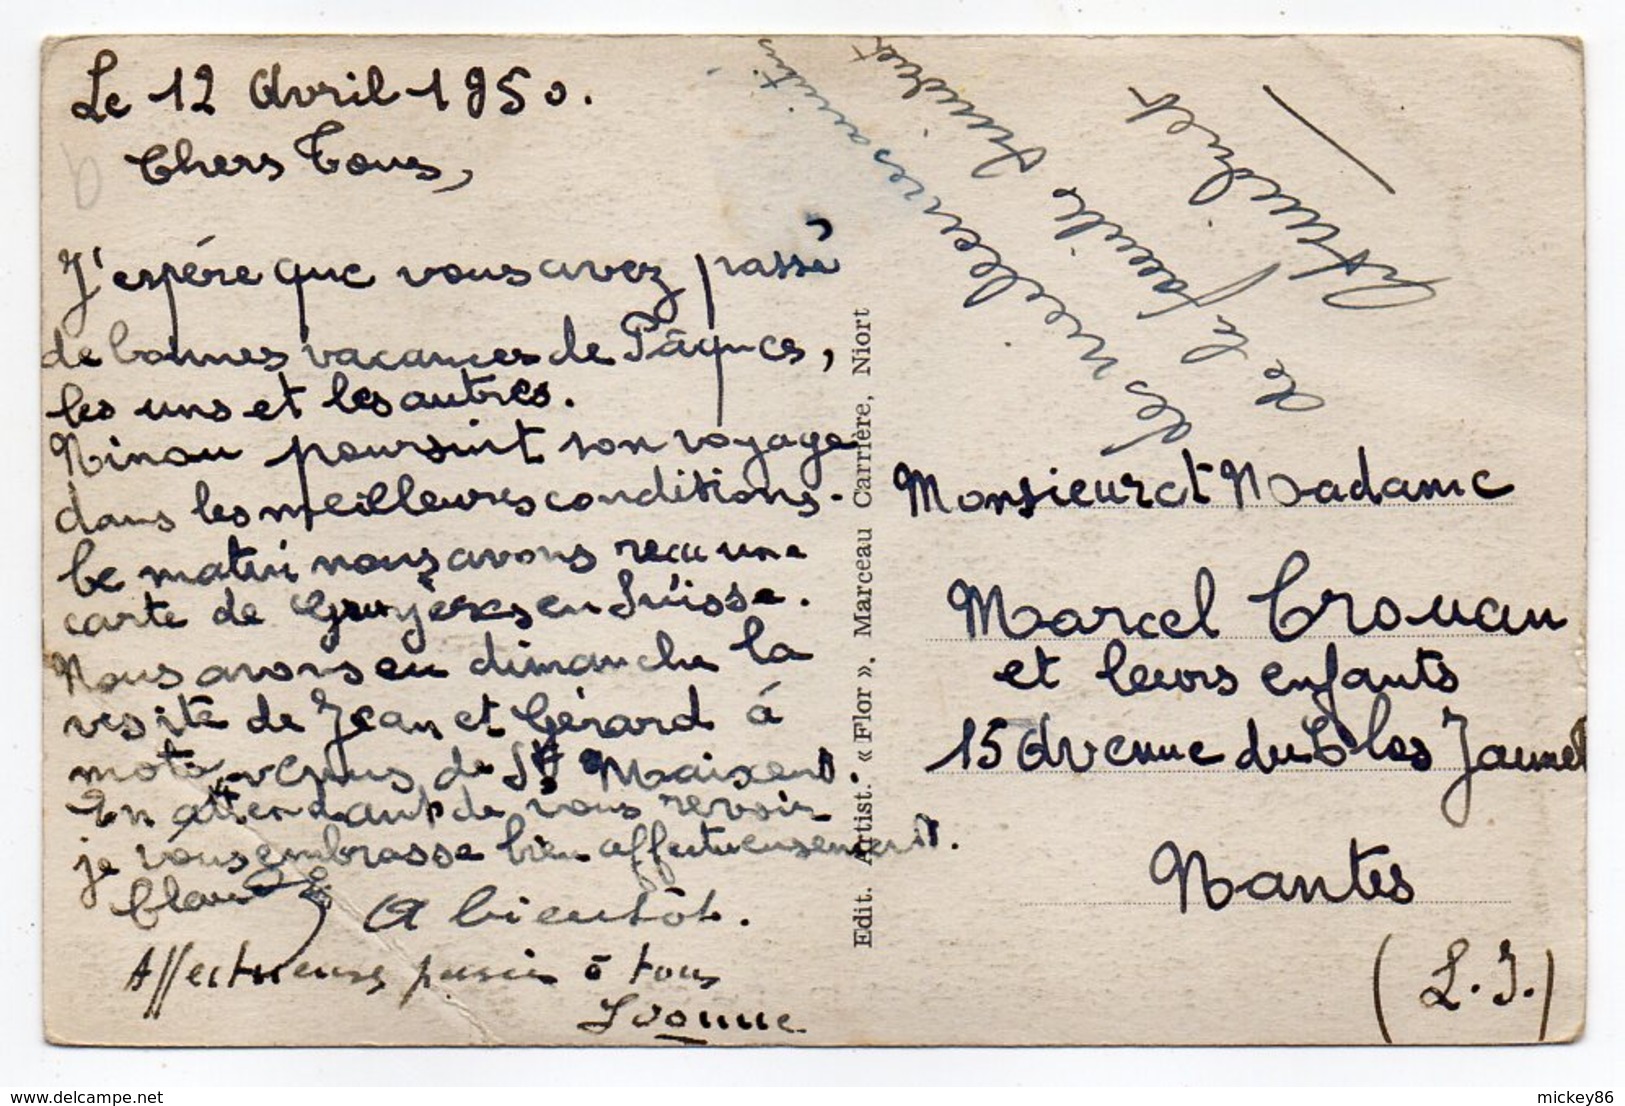 Le 12 Avril 1950.
Chers Tous,
J'espère que vous avez passé
de bonnes vacances de Pâques,
les uns et les autres.
Ninou poursuit son voyage
dans les meilleures conditions.
Ce matin nous avons reçu une
carte de Gruyères en Suisse.
Nous avons eu dimanche la
visite de Jean et Gérard à
moto, venus de St Maixent.
En attendant de vous revoir
je vous embrasse bien affectueusement.
A bientôt.
Affectueuses pensées à tous
Yvonne
Les meilleures amitiés
de la famille
Edit. Artist. « Flor ». Marceau Carrière, Niort
Monsieur et Madame
Marcel Crouan
et leurs enfants
15 Avenue du Clos Jaunet
Nantes
(L.I.)
delcampe.net
mickey86